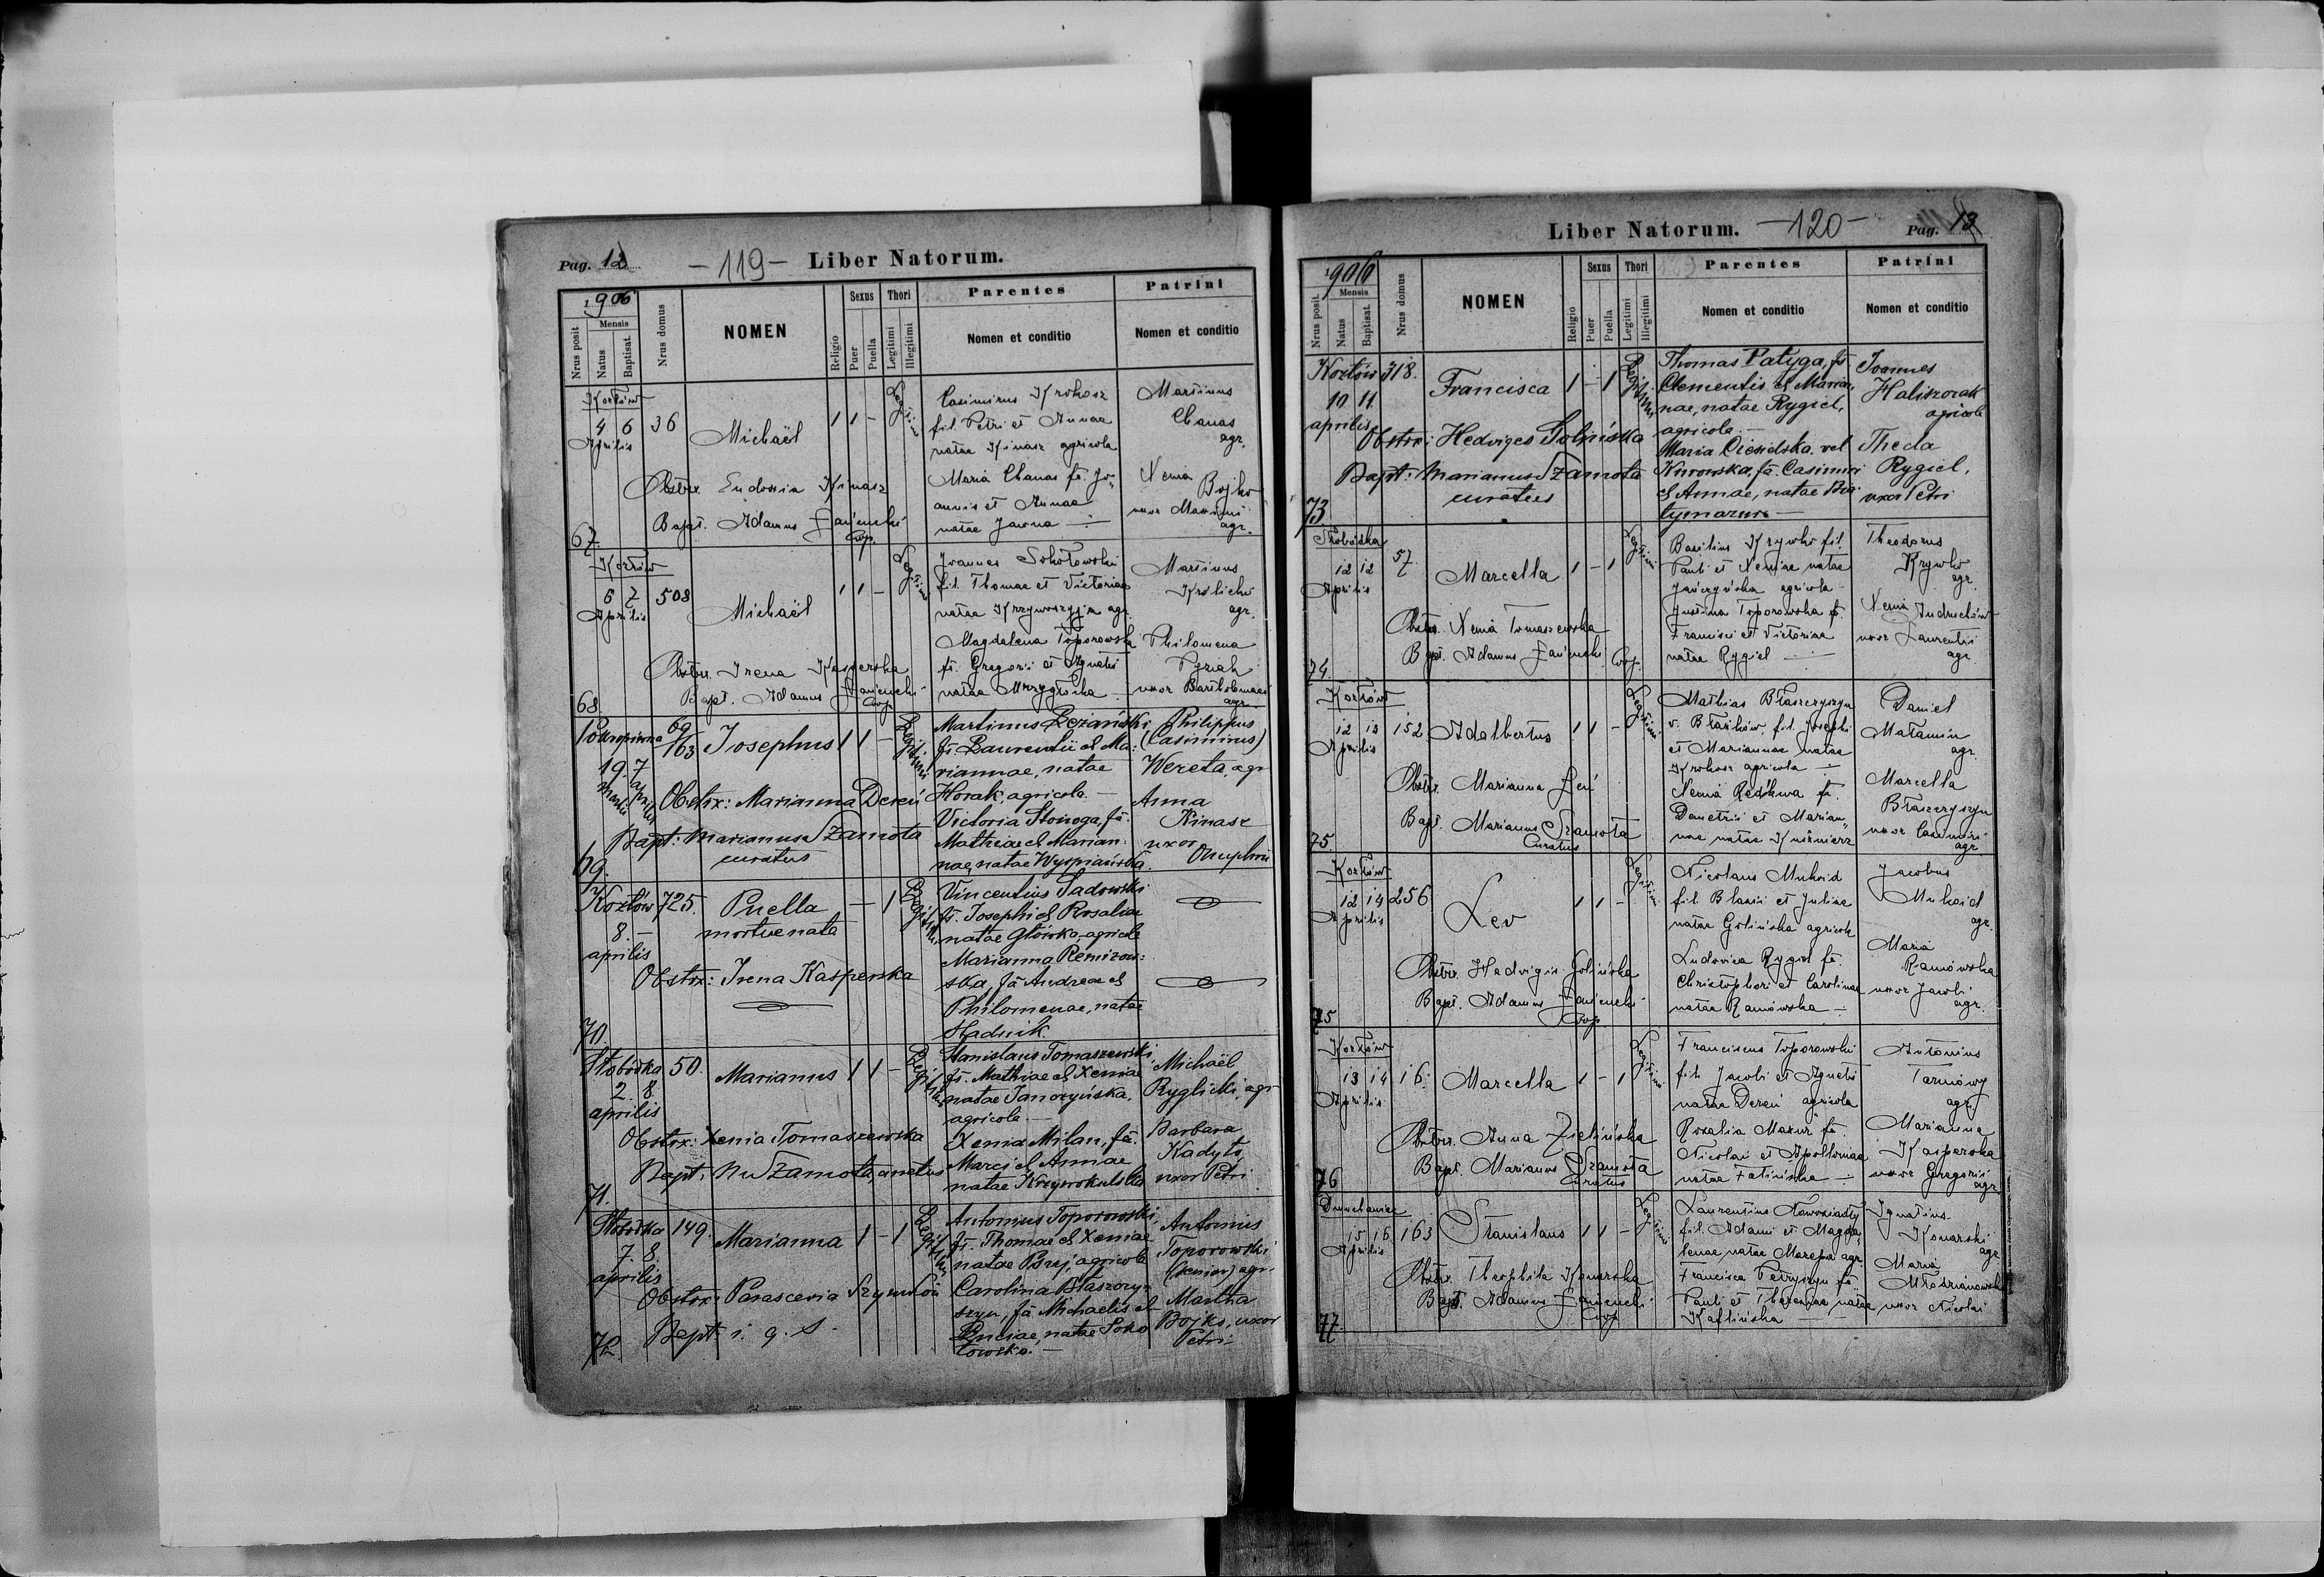 Pag. 12
- 119 - Liber Natorum.
1906
Nrus posit
Mensis
Natus
Baptisat.
Nrus domus
NOMEN
Religio
Sexus
Puer
Puella
Thori
Legitimi
Illegitimi
Parentes
Nomen et conditio
Patrini
Nomen et conditio
Kozłów
4 6 36
Aprilis
Michaël
1 1 -
Legitimi
Casimirus Krokosz
fil. Petri et Annae
natae Kinasz agricola
Maria Chanas fa. Jo„
annis et Annae
natae Jawna
Martinus
Chanas
agr.
Xenia
Bojko
uxor Maximi
agr.
Obstrx. Eudoxia Kinasz
Bapt. Adamus
Coop.
67.
Kozłów
6 7 508
Aprilis
Michaël
1 1 -
Legitimi
Joannes Sokołowski
fil. Thomae et Victoriae
natae Krzywoszyja agr.
Magdalena Toporowska
fa. Gregorii et Agnetis
natae Mrzygłocka
Martinus
Krolicki
agr.
Philomena
Tyziak
uxor Bartholomaei
agr.
Obstrx. Irena Kasperska
Bapt. Adamus
Coop.
68.
Pokropiwna 69/163
19. 7
martii aprilis
Josephus 1 1 -
Legitimi
Martinus Leżański,
fs. Laurentii et Ma:
riannae, natae
Horak, agricola. -
Victoria Stonoga, fa.
Mathiae et Marian:
nae, natae Wyspiańska.
Philippus
(Casimirus)
Wereta, agr
Anna
Kinasz
uxor
Onuphrii
Obstrx: Marianna Dereń
Bapt: Marianus Szamota
curatus
69.
Kozłów 725.
8. -
aprilis
Puella
mortue nata
- 1
Legitimi
Vincentius Sadowski
fs. Josephi et Rosaliae
natae Główka, agricola
Marianna Remizow:
ska, fa Andreae et
Philomenae, natae
Hadnik.
Obstrx: Irena Kasperska
70.
Słobódka 50.
2. 8.
aprilis
Marianus 1 1 -
Legitimi
Stanislaus Tomaszewski,
fs. Mathiae et Xeniae
natae Janczyńska,
agricola. -
Xenia Milan, fa.
Marci et Annae
natae Krzywokulska
Michaël
Ryglicki, agr
Barbara
Kadyło,
uxor Petri
Obstrx: Xenia Tomaszewska
Bapt. M Szamota, curatus
71.
Słobódka 149.
7. 8.
aprilis
Marianna 1 - 1
Legitimi
Antonius Toporowski,
fs. Thomae et Xeniae
natae Buj, agricola
Carolina Błaszczy:
szyn, fa Michaëlis et
Luciae, natae Soko
łowska. -
Antonius
Toporowski
(senior) agr.
Martha
Bojko, uxor
Petri
Obstrx: Parascevia Szymków
Bapt. i. q. s.
72.
Liber Natorum. - 120 - Pag. 13
1906
Nrus posit.
Mensis
Natus
Baptisat.
Nrus domus
NOMEN
Religio
Sexus
Puer
Puella
Thori
Legitimi
Illegitimi
Parentes
Nomen et conditio
Patrini
Nomen et conditio
Kozłów 318.
10 11
aprilis
Francisca 1 - 1
Legitimi
Thomas Patyga, fs
Clementis et Marian:
nae, natae Rygiel,
agricola. -
Maria Ciesielska vel
Kurowska, fa. Casimiri
et Annae, natae
Joannes
Haliszczak
agricola
Thecla
Rygiel,
uxor Petri
Obstrx: Hedviges Golińska
Bapt: Marianus Szamota
curatus
73.
Słobódka
12 12 57.
Aprilis
Marcella 1 - 1
Legitimi
Basilius Krywko fil.
Pauli et Xeniae natae
Jańczyńska agricola
Justina Toporowska fa.
Francisci et Victoriae
natae Rygiel
Theodorus
Krywko
agr.
Xenia Andruchów
uxor Laurentii
agr.
Obstrx. Xenia Tomaszewska
Bapt. Adamus
Coop.
74.
Kozłów
12 13 152
Aprilis
Adalbertus 1 1 -
Legitimi
Mathias Błaszczyszyn
v. Błażków, fil. Josephi
et Mariannae natae
Krokosz agricola
Xenia Redkwa fa.
Demetrii et Marian„
nae natae Kuśnierz
Daniel
Matamin
agr.
Marcella
Błaszczyszyn
uxor Casimiri
agr.
Obstrx. Marianna
Bapt. Marianus Szamota
Curatus
75.
Kozłów
12 14 256
Aprilis
Leo
1 1 -
Legitimi
Nicolaus Mukoid
fil. Blasii et Juliae
natae Golińska agricola
Ludovica Rygiel fa.
Christophori et Carolinae
natae Ramówska -
Jacobus
Mukoid
agr.
Maria
Ramówska
uxor Jacobi
agr.
Obstrx. Hedvigis Golińska
Bapt. Adamus
Coop.
75
Kozłów
13 14 16.
Aprilis
Marcella 1 - 1
Legitimi
Franciscus Toporowski
fil. Jacobi et Agnetis
natae Dereń agricola
Rosalia Mazur fa.
Nicolai et Apolloniae
natae Falińska
Antonius
Tarnowy
agr.
Marianna
Kasperska
uxor Gregorii
agr.
Obstrx. Anna Zielińska
Bapt. Marianus Szamota
Curatus
76
Dmuchawiec
15 16 163
Aprilis
Stanislaus 1 1 -
Legitimi
Laurentius Nawoziadły
fil. Adami et Magda„
lenae, natae Mazepa agr.
Francisca Petryszyn fa.
Pauli et Theresiae natae
Kaflińska
Ignatius
Konarski
agr.
Maria
Młodzianowska
uxor Nicolai
Obstrx. Theophila Konarska
Bapt. Adamus
Coop.
77.